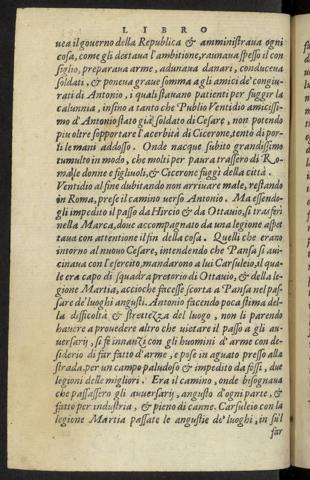 LIBRO
uea il governo della Republica & amministraua ogni
cosa, come gli dettaua l'ambitione, raunaua spesso il con
siglio, preparaua arme, adunaua danari, conduceua
soldati, & poneua graue somma a gli amici de' congiu
rati di Antonio, i quali stauano patienti per fuggir la
calunnia, insino a tanto che Publio Ventidio amicissi-
mo d'Antonio stato già soldato di Cesare, non potendo
piu oltre sopportare l'acerbità di Cicerone, tentò di por-
li le mani addosso. Onde nacque subito grandissimo
tumulto in modo, che molti per paura trassero di Ro-
ma le donne e figliuoli, & Cicerone fuggì della città.
Ventidio al fine dubitando non arriuare male, restando
in Roma, prese il camino verso Antonio. Ma essendo-
gli impedito il passo da Hircio & da Ottauio, si trasferì
nella Marca, doue accompagnato da una legione aspet
taua con attentione il fin della cosa. Quelli che erano
intorno al nuouo Cesare, intendendo che Pansa s'aui-
cinaua con l'esercito, mandarono a lui Carsuleio, il qua-
le era capo di squadra pretorio di Ottauio, & della le-
gione Martia, accioche facesse scorta a Pansa nel pas-
sare de' luoghi angusti. Antonio facendo poca stima del-
la difficoltà & strettezza del luogo, non li parendo
hauere a prouedere altro che uietare il passo a gli au-
uersarij, si fè innanzi con gli huomini d'arme con de-
siderio di far fatto d'arme, e pose in aguato presso alla
strada, per un campo paludoso & impedito da fossi, due
legioni delle migliori. Era il camino, onde bisognaua
che passassero gli auuersarij, angusto d'ogni parte, &
fatto per industria, & pieno di canne. Carsuleio con la
legione Martia passate le angustie de' luoghi, in sùl
far